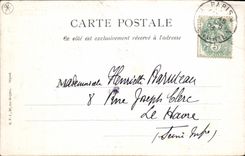 CARTE POSTALE
Ce côté est exclusivement réservé à l'adresse
PARIS
Mademoiselle Henriette
8 Rue Joseph Clerc
Le Havre
(Seine Infre)